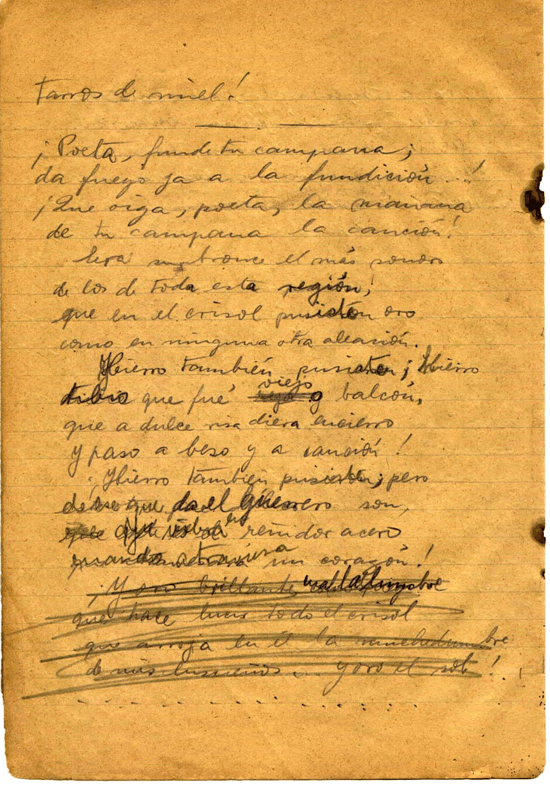 tarros de miel!
¡Poeta, funde tu campana;
da fuego ya a la fundición...!
¡Que oiga, poeta, la mañana
de tu campana la canción!
Será su bronce el más sonoro
de los de toda esta región;
que en el crisol pusiste oro
como en ninguna otra aleación.
Hierro también pusiste; hierro
que fué viejo balcón,
que a dulce risa diera encierro
y paso a beso y a canción!
¡Hierro también pusiste; pero
de ese que da el guerrero son,
que vibra en reñidor acero
cuando atraviesa un corazón!
¡Y oro brillante, cual la lumbre
que hace lucir todo el crisol
que arroja en él la muchedumbre
de mis ensueños... y oro el sol!